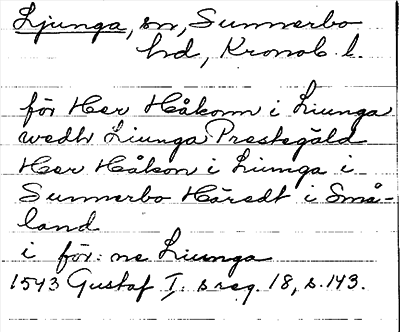 Ljunga, sn, Sunnerbo
hd, Kronob. l.
för Her Håkonn i Liunga
wedh Liunga Prestegäld
Her Håkon i Liunga i
Sunnerbo Häredt i Små-
land
i för: ne Liunga
1543 Gustaf I: s reg. 18, s. 143.